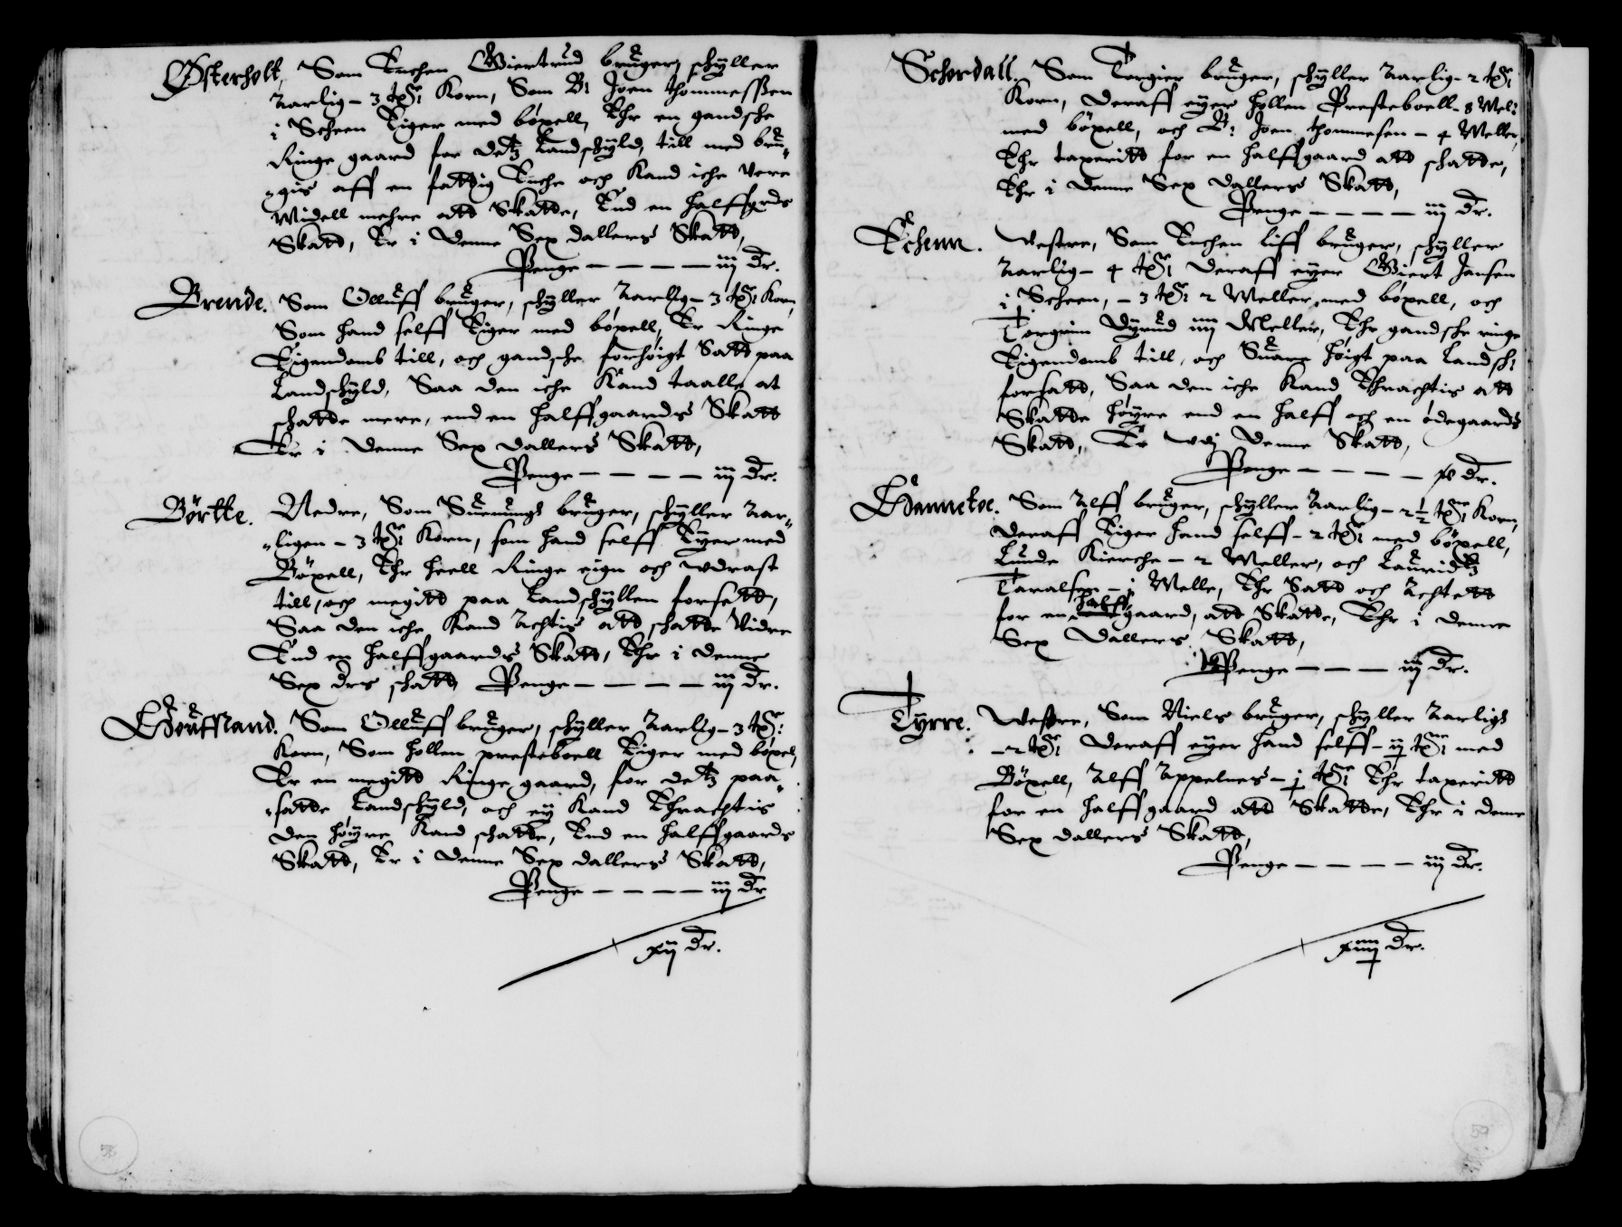 Østerholt, Som Enchen Giertrud bruger, schÿller
Aarlig – 3 tȢr Korn, Som B: Joen thommessen
i Scheen Eiger med böxell, Ehr en gandsche
Ringe gaard for detz Landschÿld, till med bru„
„gis aff en fattig Enche och Kand iche Vere
Widell mehre att Skatte, End en halffgrds
Skatt, Er i denne Sex dallers Skatt,
Penge – – – – iij dr.
Brende. Som Olluff bruger, schÿller Aarlig – 3 tȢr Korn,
Som hand selff Eiger med böxell, Er Ringe
Eigendomb till, och gandsche forhöigt Satt paa
Landschÿld, Saa den iche Kand taalle at
schatte mere, end en halffgaards Skatt
Er i denne Sex dallers Skatt,
Penge – – – – iij dr.
Börtte. Nedre, Som Suenung bruger, schÿller Aar„
„ligen – 3 tȢr Korn, som hand selff Eÿer med
Böxell, Ehr heell Ringe eign och vdrast
till, och megitt paa Landschÿllen forsatt,
Saa den iche Kand Achtis att schatte Vidre
End en halffgaards Skatt, Ehr i denne
Sex drs schatt, Penge – – – – iij dr.
Gouffland. Som Olluff bruger, schÿller Aarlig – 3 tȢr:
Korn, Som hollen presteboell Eiger med böxel,
Er en megitt Ringe gaard, for detz paa„
„satte Landschÿld, och eÿ Kand Ehrachtis
den höÿre Kand schatte, End en halffgaards
Skatt, Er i denne Sex dallers Skatt,
Penge – – – – iij dr
xij dr.
58
Schordall. Som Torgier bruger, schÿller Aarlig – 2 tȢr
Korn, deraff eÿer hollen Presteboell – 8 Mel:
med böxell, och B: Joen thommesen – 4 Meller,
Ehr taxeritt for en halffgaard att schatte,
Ehr i denne Sex dallers Skatt,
Penge – – – – iij dr.
Echenn. Vestre, Som Enchen Liff bruger, schÿller
Aarlig – 4 tȢr deraff eÿer Giert Jensen
i Scheen, – 3 tȢr 2 Meller med böxell, och
Torgrim Dÿrud iiij Meller, Ehr gandsche ringe
Eigendomb till, och Suare höigt paa Landsch:
forsatt, Saa den iche Kand Ehrachtis att
Skatte höÿre end en halff och en ödegaards
Skatt, Er vdj denne Skatt,
Penge – – – – dr.
Hannekee. Som Alff bruger, schÿller Aarlig – 2½ tȢr Korn,
deraff Eiger hand selff – 2 tȢr med böxell,
Lunde Kierche – 2 Meller, och Lauridtz
Taralsen – j Melle, Ehr Satt och Achtett
for en halff gaard, att Skatte, Ehr i denne
Sex dallers Skatt,
Penge – – – iij dr.
Tÿrre. Vestre, Som Niels bruger, schÿller Aarligh
– 2 tȢr deraff eÿer hand selff – tȢr med
Böxell, Alff Appelnes – tȢr Ehr taxeritt
for en halffgaard att Skatte, Ehr i denne
Sex dallers Skatt,
Penge – – – – iij dr.
xiiij dr.
59